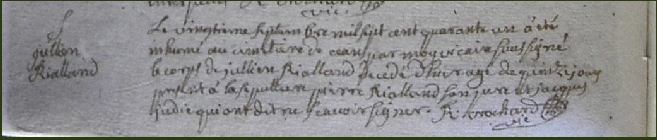 vic
Le vingtieme septembre mil sept cent quarante un a été
jullien
inhumé au cimitiere de ceans par moy vicaire soussigné
Rialland
le corps de jullien Rialland decedé d'hier agé de quinze jours
present a la sepulture pierre Rialland son pere et jacques
judic qui ont dit ne scavoir signer. R. brochard
vic